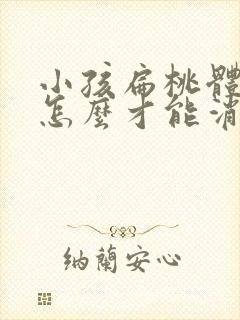 小孩扁桃體
怎麼才能消
納蘭安心